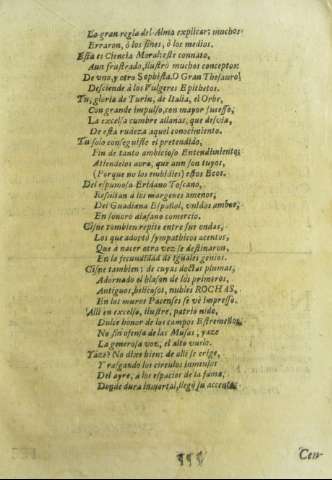 La gran regla del Alma explicar; muchos
Erraron, ò los fines, ò los medios.
Esta es Ciencia Moral: este connato,
Aun frustrado, ilustrò muchos conceptos:
De vno, y otro Sophista. O Gran Thesauro!
Desciende à los Vulgares Epithetos.
Tu, gloria de Turin, de Italia, el Orbe,
Con grande impulso, con mayor sucesso,
La excelsa cumbre allanas, que desvia,
De esta rudeza aquel conocimiento.
Tu solo conseguiste el pretendido,
Fin de tanto ambicioso Entendimiento;
Attendelos aora, que aun son tuyos,
(Porque no los embidies) estos Ecos.
Del espumoso Eridano Toscano,
Resultan à los margenes amenos,
Del Guadiana Español, vnidos ambos,
En sonoro diafano comercio.
Cisne tambien repite entre sus ondas,
Los que adoptò sympathicos acentos,
Que à nacer otra vez se destinaron,
En la fecundidad de iguales genios.
Cisne tambien: de cuyas doctas plumas,
Adornado el blason de los primeros,
Antiguos, belicosos, nobles ROCHAS,
En los muros Pacenses se vè impresso.
Alli en excelso, ilustre, patrio nido,
Dulce honor de los campos Estremeños,
No sin ofensa de las Musas, yaze
La generosa voz, el alto vuelo.
Yaze? No dixe bien: de alli se erige,
Y rasgando los circulos inmensos
Del ayre, à los espacios de la fama,
Donde dura inmortal, llegò su accento.
¶¶¶
Con-